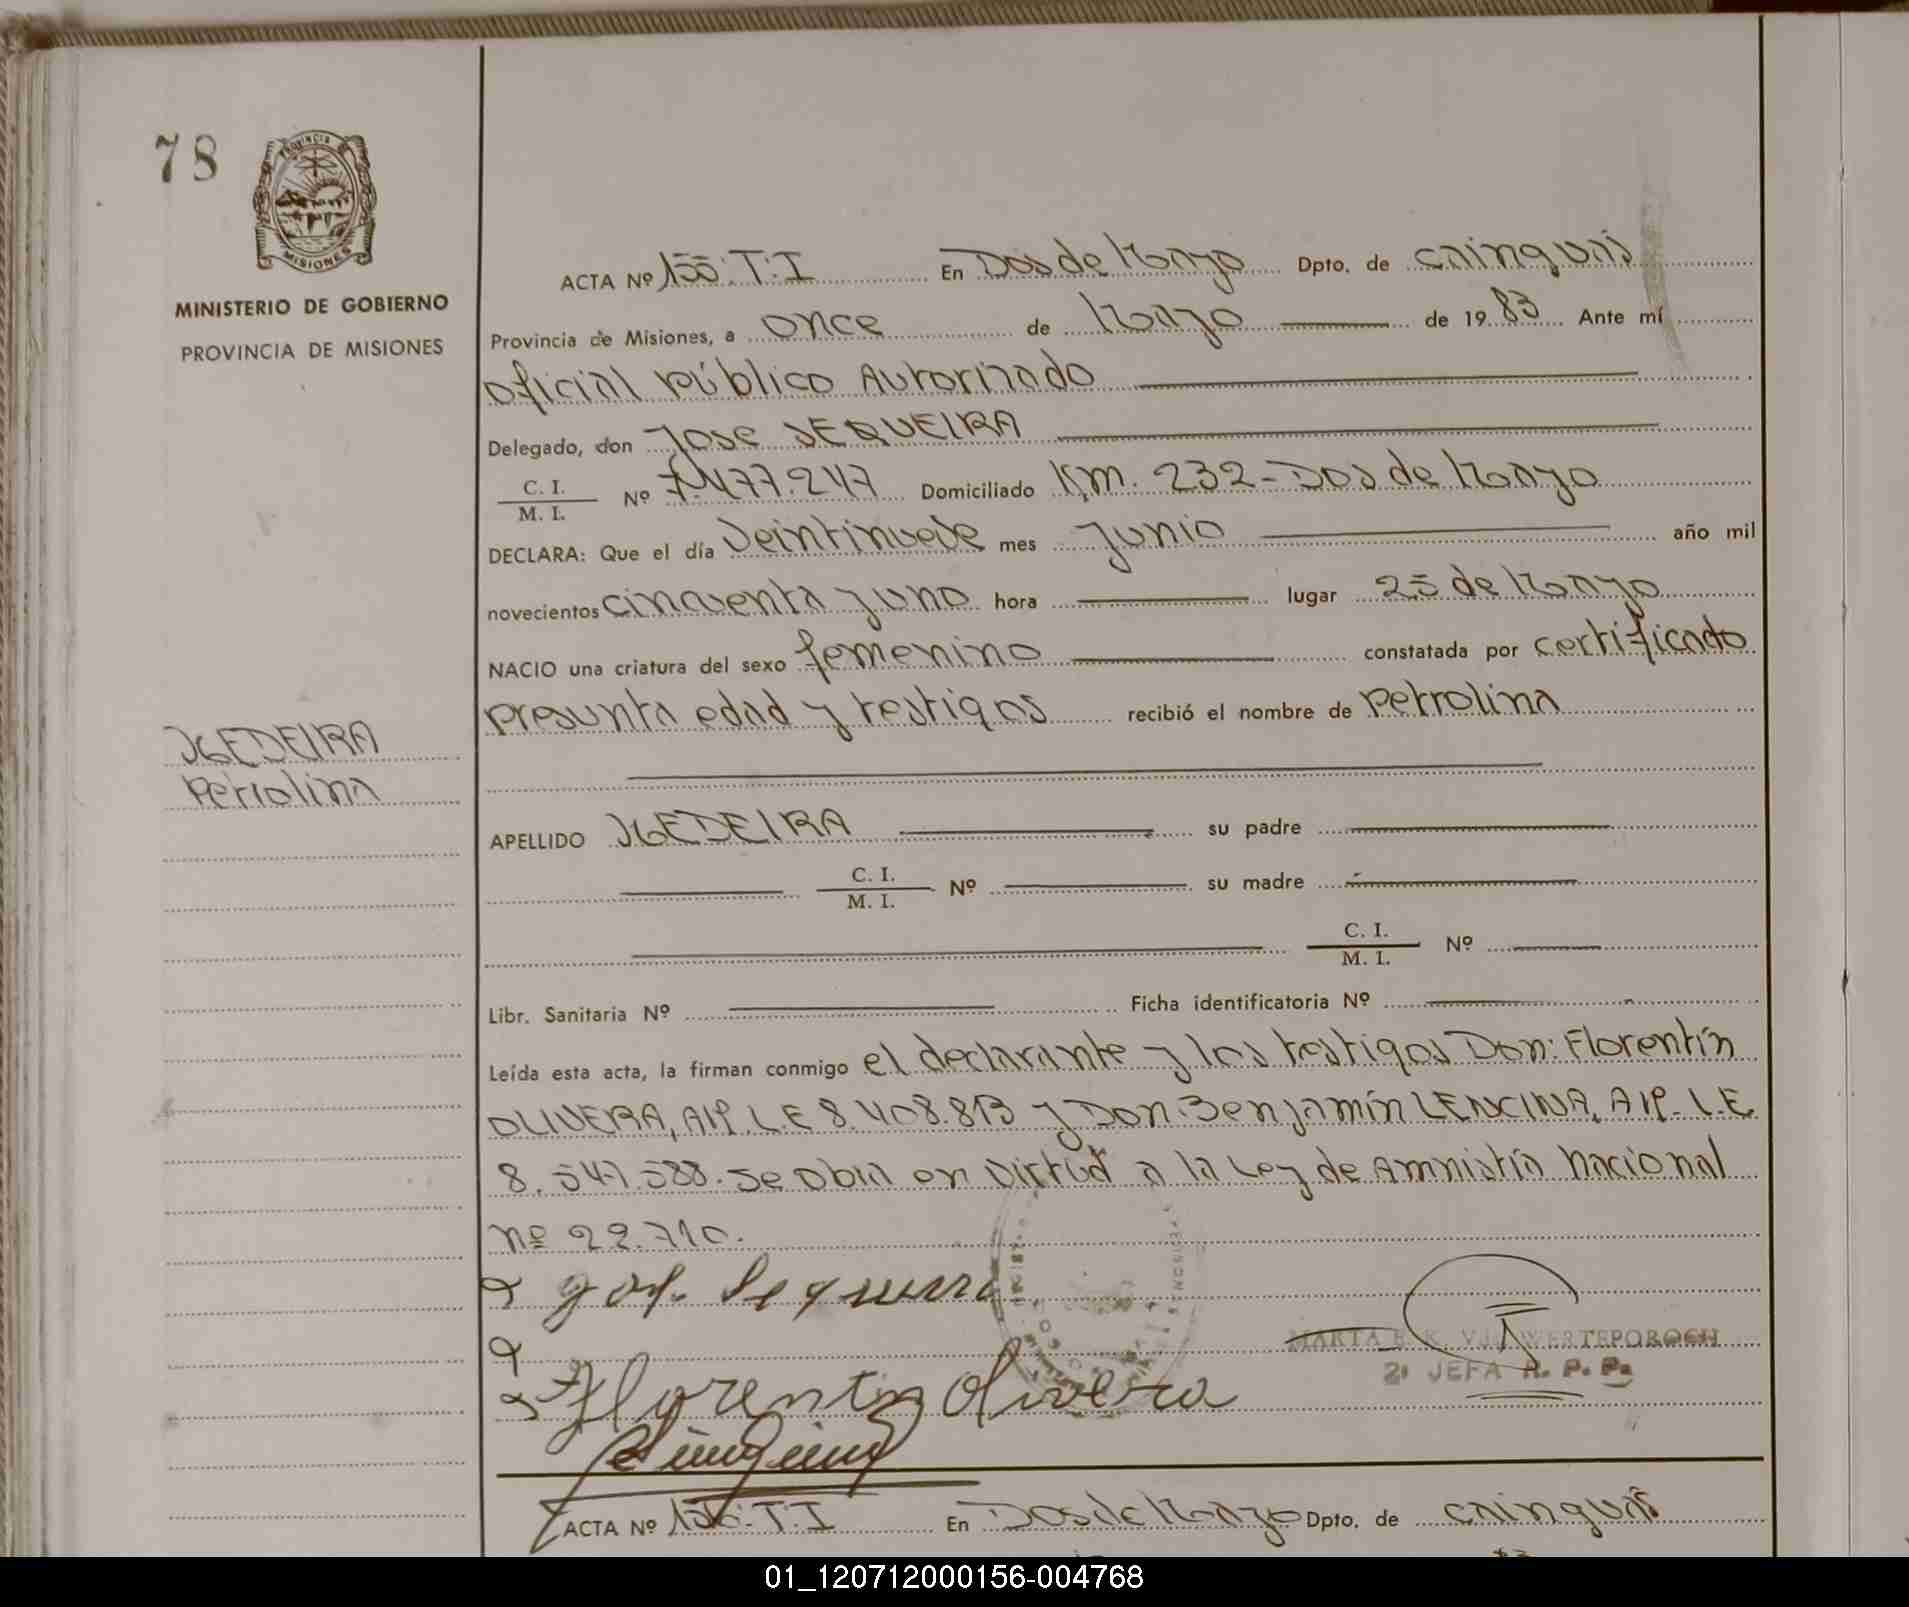 78
PROVINCIA
MISIONES
MINISTERIO DE GOBIERNO
PROVINCIA DE MISIONES
ACTA Nº 155:T:I En Dos de Mayo Dpto. de Cainguás
Provincia de Misiones, a once de Mayo de 1983 Ante mí
Oficial Público Autorizado
Delegado, don Jose SEQUEIRA
C. I.
M. I. Nº 7.477.247 Domiciliado Km. 232-Dos de Mayo
DECLARA: Que el día Veintinueve mes Junio año mil
novecientos cincuenta y uno hora lugar 25 de Mayo
NACIO una criatura del sexo femenino constatada por certificado
presunta edad y testigos recibió el nombre de Petrolina
JGEDEIRA
Petrolina
APELLIDO JGEDEIRA su padre
C. I.
M. I. Nº su madre
C. I.
M. I. Nº
Libr. Sanitaria Nº Ficha identificatoria Nº
Leída esta acta, la firman conmigo el declarante y los testigos Don: Florentín
OLIVERA, AIP. L.E 8.408.813 y Don Benjamín LENCINA, AIP. L.E
8.547.588. Se obra en virtud a la Ley de Amnistía Nacional
Nº 22.710.
Jose Sequeira
MARTA E. K. WESTEPOROCH
2ª JEFA R. P. P.
Florentin Olivera
ACTA Nº 156:T:I En Dos de Mayo Dpto. de Cainguás
01_120712000156-004768